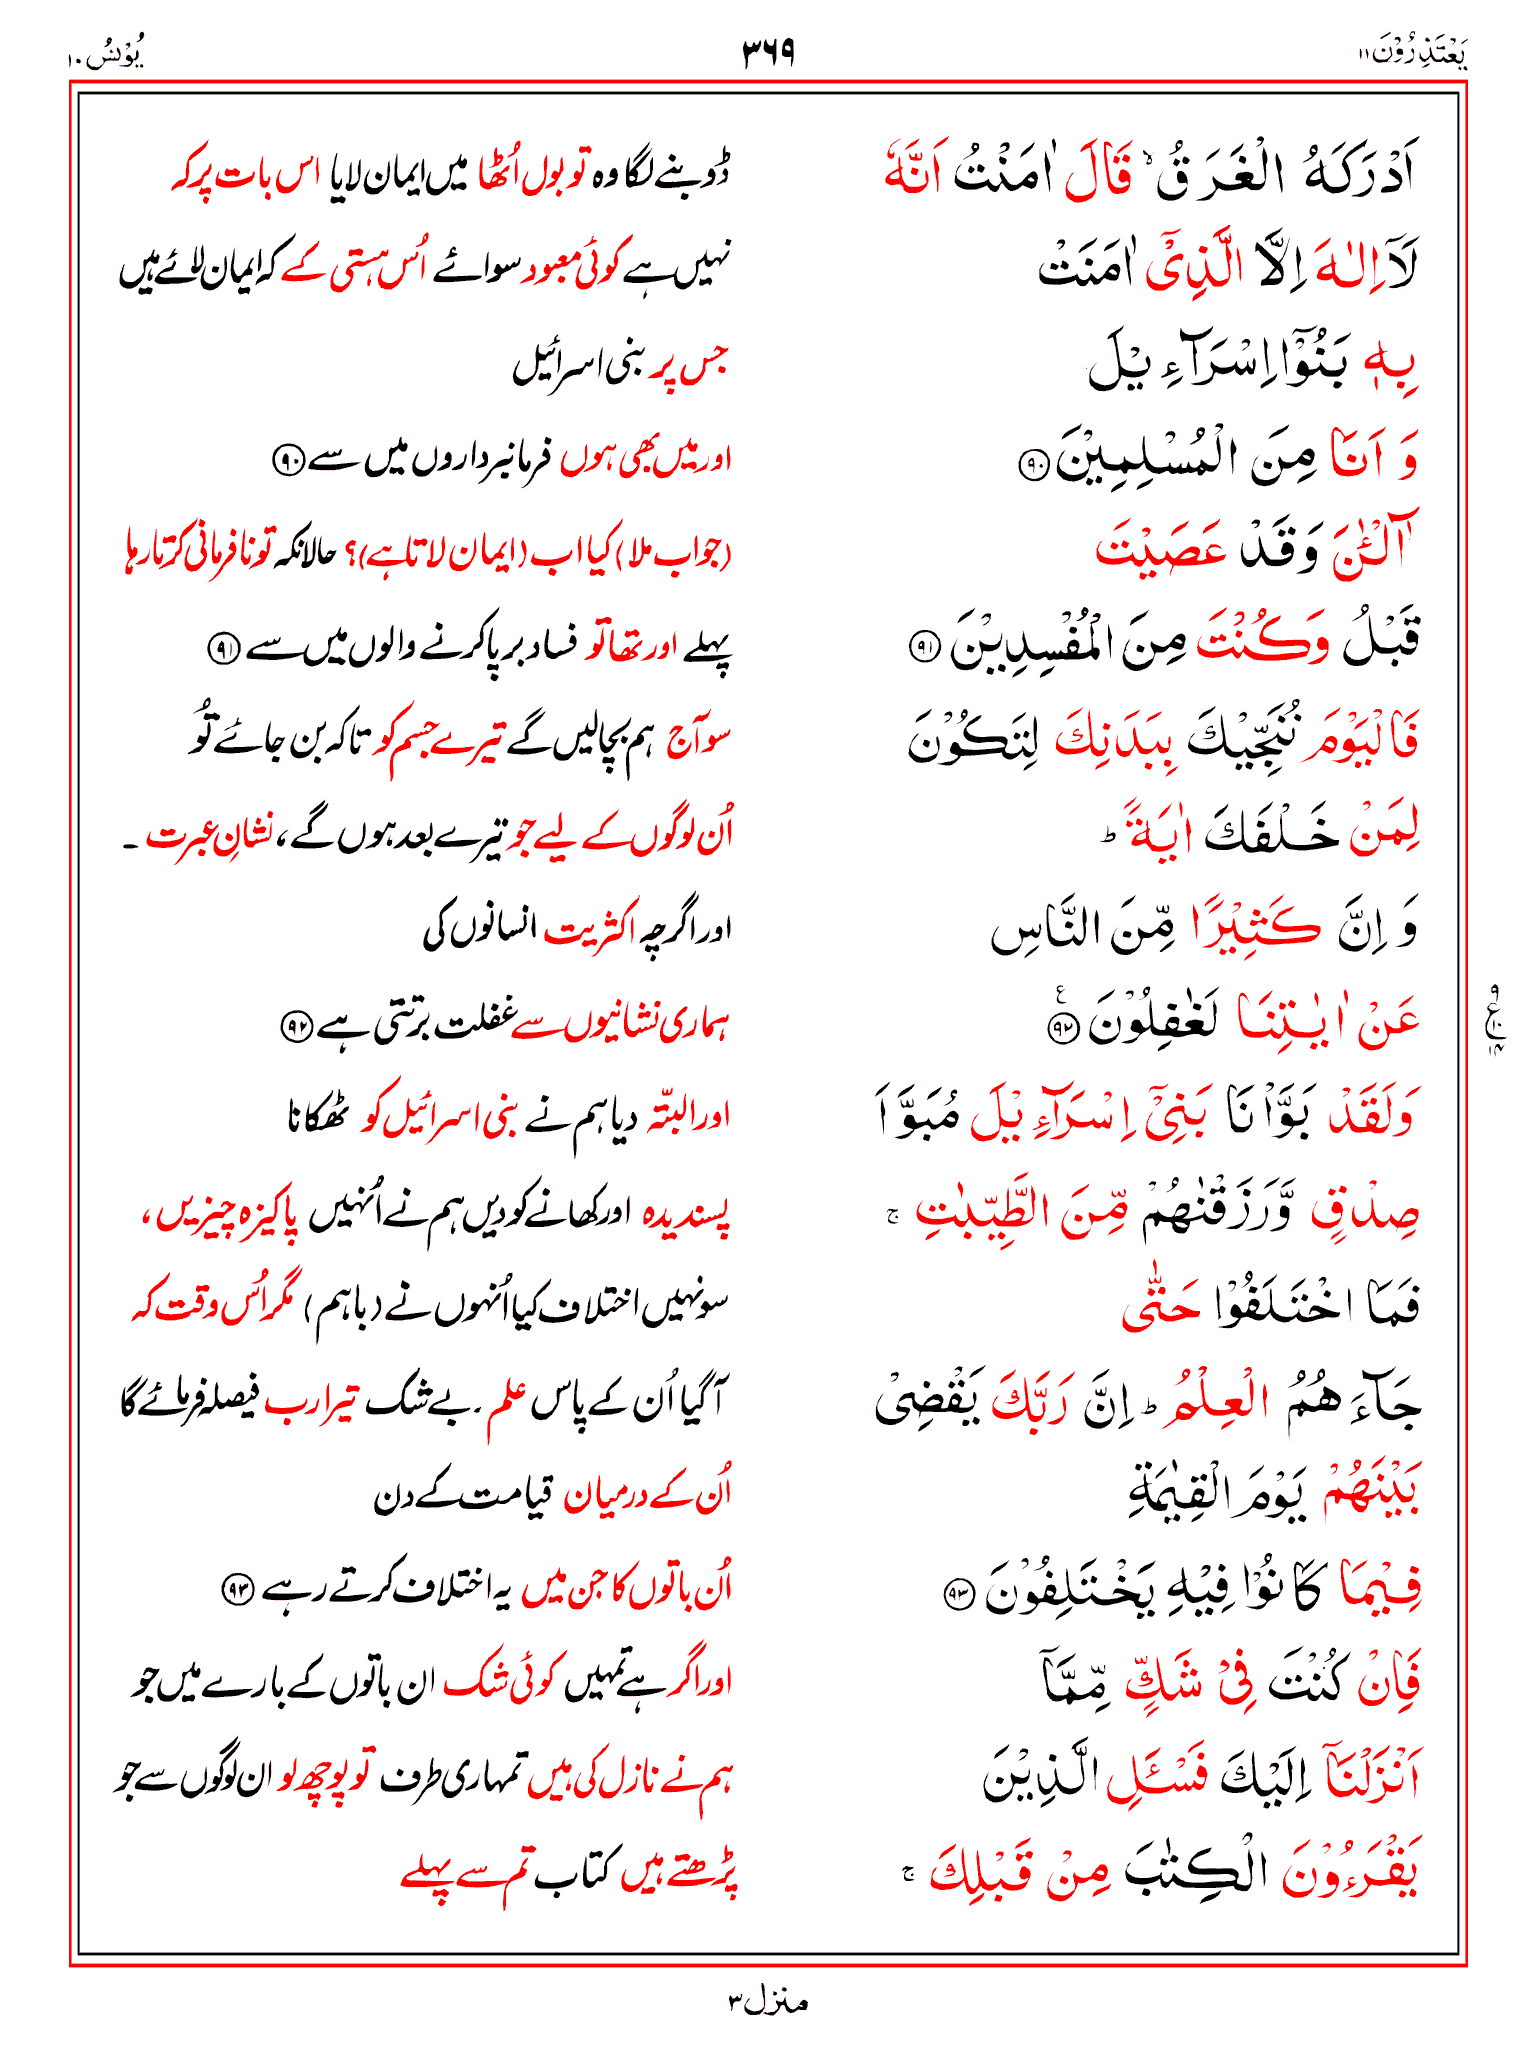 یَعْتَذِرُوْنَ ۱۱ ۳۶۹ یُوْنُس ۱۰
اَدْرَكَهُ الْغَرَقُ ۙ قَالَ اٰمَنْتُ اَنَّهٗ ڈوبنے لگا وہ تو بول اُٹھا میں ایمان لایا اس بات پر کہ
لَاۤ اِلٰهَ اِلَّا الَّذِیْۤ اٰمَنَتْ نہیں ہے کوئی معبود سوائے اُس ہستی کے کہ ایمان لائے ہیں
بِهٖ بَنُوْۤا اِسْرَآءِیْلَ جس پر بنی اسرائیل
وَ اَنَا مِنَ الْمُسْلِمِیْنَ ﴿۹۰﴾ اور میں بھی ہوں فرمانبرداروں میں سے ﴿۹۰﴾
آٰلْـٰٔنَ وَقَدْ عَصَیْتَ (جواب ملا) کیا اب (ایمان لاتا ہے)؟ حالانکہ تو نافرمانی کرتا رہا
قَبْلُ وَكُنْتَ مِنَ الْمُفْسِدِیْنَ ﴿۹۱﴾ پہلے اور تھا تو فساد برپا کرنے والوں میں سے ﴿۹۱﴾
فَالْیَوْمَ نُنَجِّیْكَ بِبَدَنِكَ لِتَكُوْنَ سو آج ہم بچا لیں گے تیرے جسم کو تاکہ بن جائے تُو
لِمَنْ خَلْفَكَ اٰیَةً ؕ اُن لوگوں کے لیے جو تیرے بعد ہوں گے، نشانِ عبرت ۔
وَ اِنَّ كَثِیْرًا مِّنَ النَّاسِ اور اگرچہ اکثریت انسانوں کی
عَنْ اٰیٰتِنَا لَغٰفِلُوْنَ ﴿۹۲﴾ ہماری نشانیوں سے غفلت برتتی ہے ﴿۹۲﴾
ع ۹ ۱۰ ۱۴
وَلَقَدْ بَوَّاْنَا بَنِیْۤ اِسْرَآءِیْلَ مُبَوَّاَ اور البتّہ دیا ہم نے بنی اسرائیل کو ٹھکانا
صِدْقٍ وَّرَزَقْنٰهُمْ مِّنَ الطَّیِّبٰتِ ۚ پسندیدہ اور کھانے کو دیں ہم نے اُنہیں پاکیزہ چیزیں،
فَمَا اخْتَلَفُوْا حَتّٰی سو نہیں اختلاف کیا اُنہوں نے (باہم) مگر اُس وقت کہ
جَآءَهُمُ الْعِلْمُ ؕ اِنَّ رَبَّكَ یَقْضِیْ آگیا اُن کے پاس علم ۔ بے شک تیرا رب فیصلہ فرمائے گا
بَیْنَهُمْ یَوْمَ الْقِیٰمَةِ اُن کے درمیان قیامت کے دن
فِیْمَا كَانُوْا فِیْهِ یَخْتَلِفُوْنَ ﴿۹۳﴾ اُن باتوں کا جن میں یہ اختلاف کرتے رہے ﴿۹۳﴾
فَاِنْ كُنْتَ فِیْ شَكٍّ مِّمَّاۤ اور اگر ہے تمہیں کوئی شک ان باتوں کے بارے میں جو
اَنْزَلْنَاۤ اِلَیْكَ فَسْـَٔلِ الَّذِیْنَ ہم نے نازل کی ہیں تمہاری طرف تو پوچھ لو ان لوگوں سے جو
یَقْرَءُوْنَ الْكِتٰبَ مِنْ قَبْلِكَ ۚ پڑھتے ہیں کتاب تم سے پہلے
منزل ۳